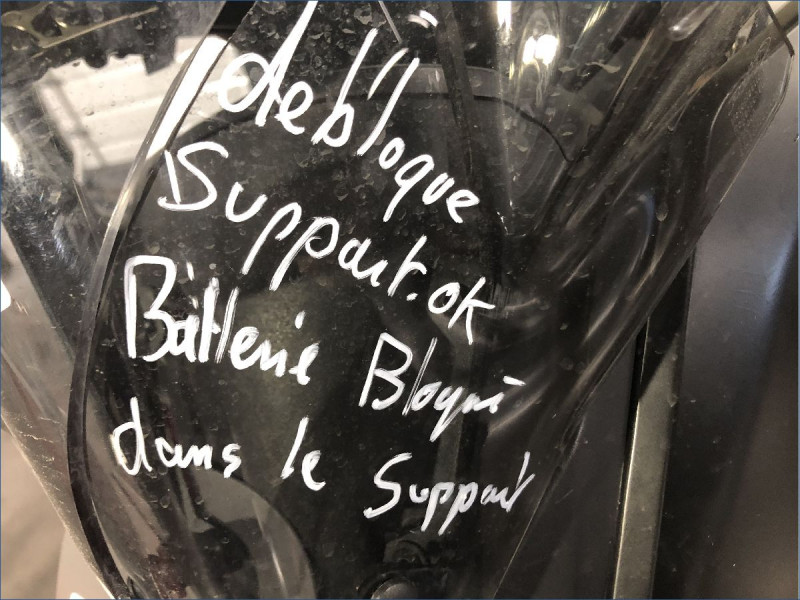 debloque
Support.ok
Batterie Bloqué
dans le Support